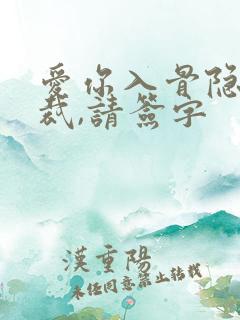 愛你入骨隐
裁,請簽字
漢重陽
未经同意禁止转载